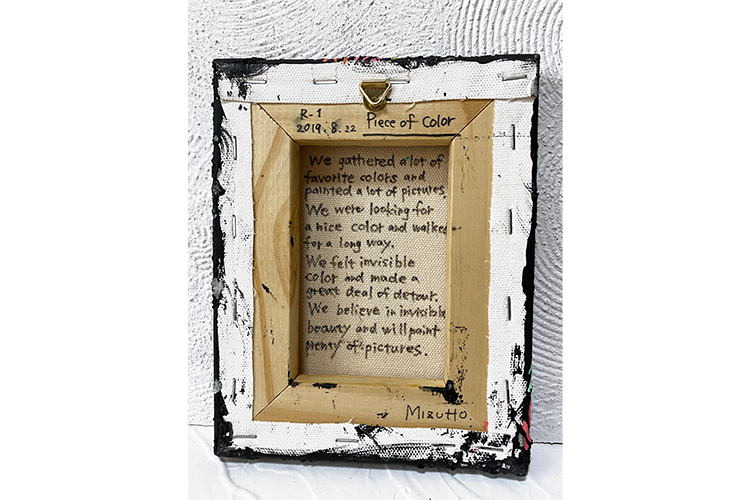 R-1
2019.8.22 Piece of Color
We gathered a lot of
favorite colors and
painted a lot of pictures.
We were looking for
a nice color and walked
for a long way.
We felt invisible
color and made a
great deal of detour.
We believe in invisible
beauty and will paint
plenty of pictures.
MIZUTTO.